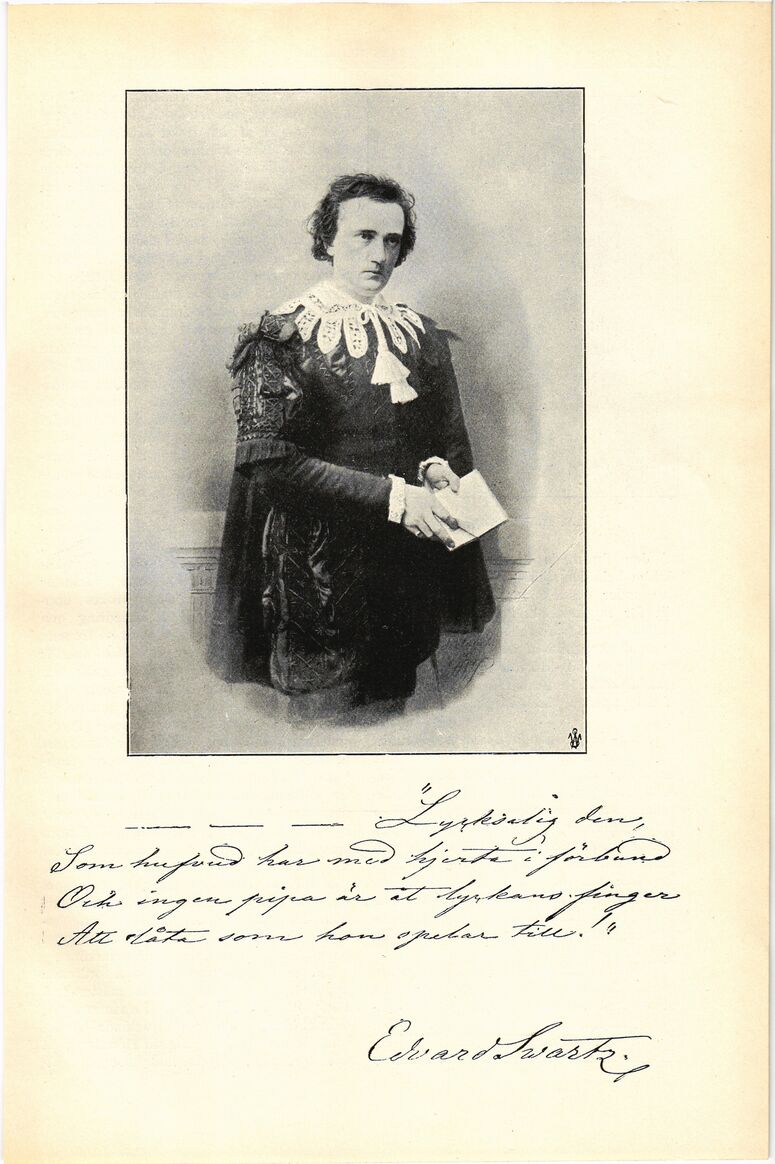 — — — "Lycksalig den,
Som hufvud har med hjerta i förbund
Och ingen pipa är åt lyckans finger
Att låta som hon spelar till!"
Edvard Swartz.